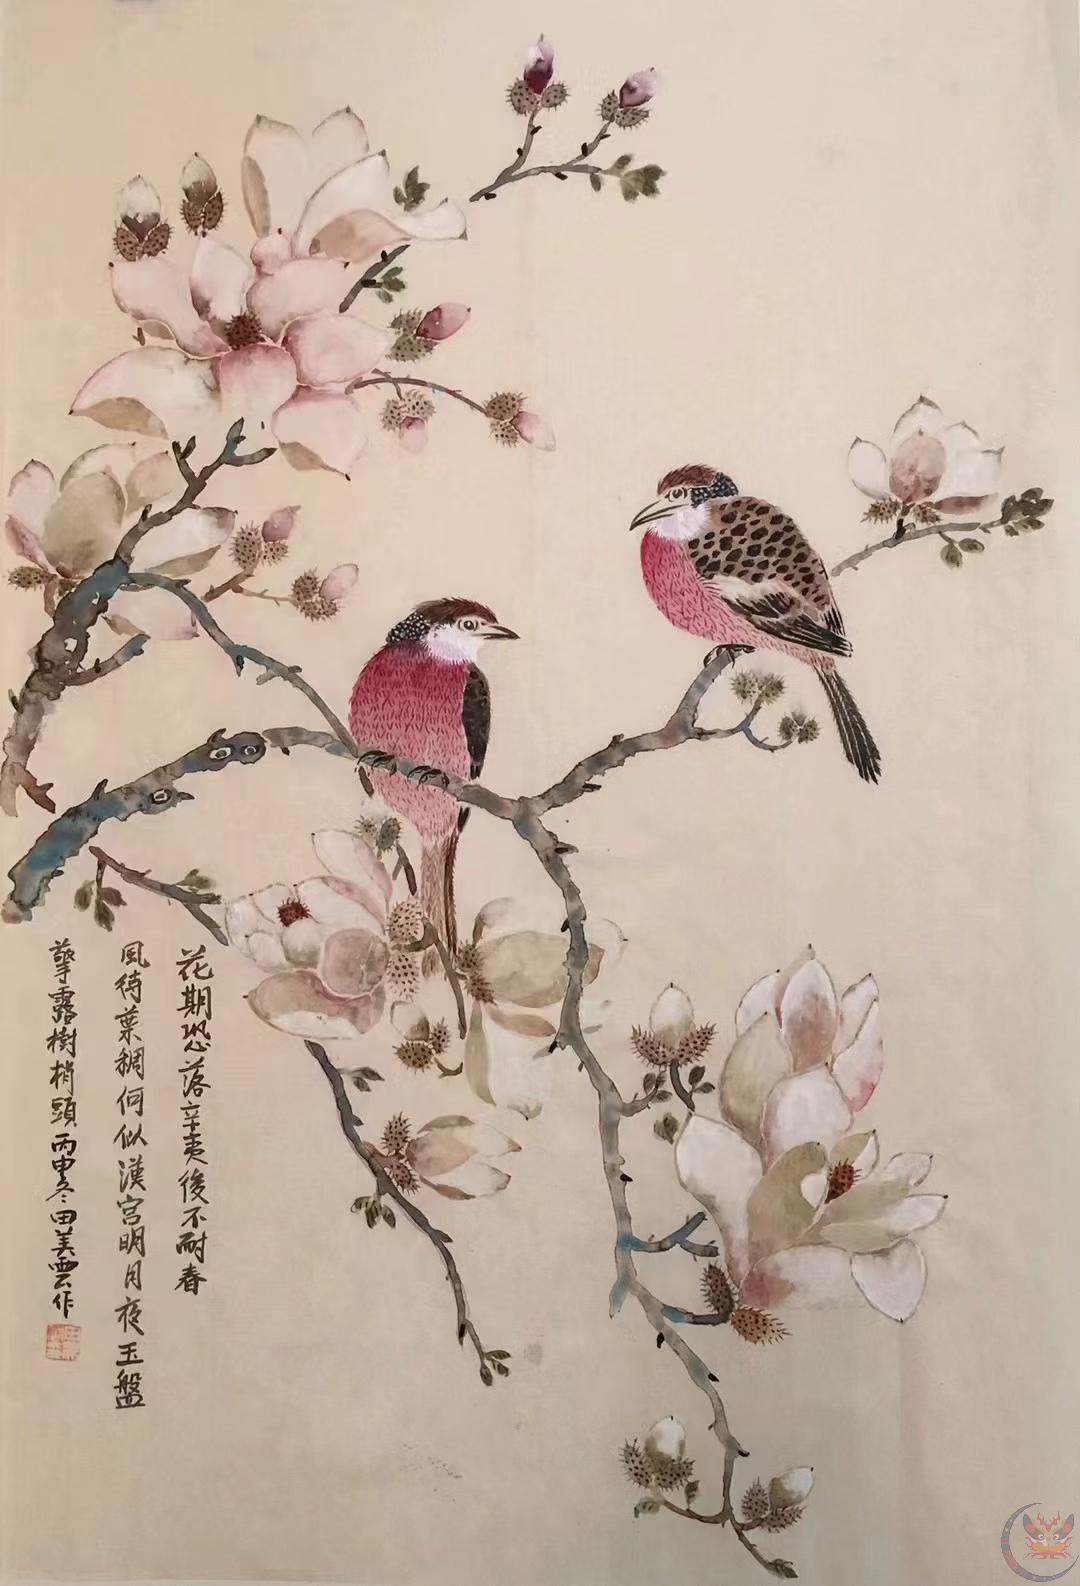 花期恐落辛夷後不耐春
風待葉稠何似漢宮明月夜玉盤
擎露樹梢頭丙申冬田美雲作